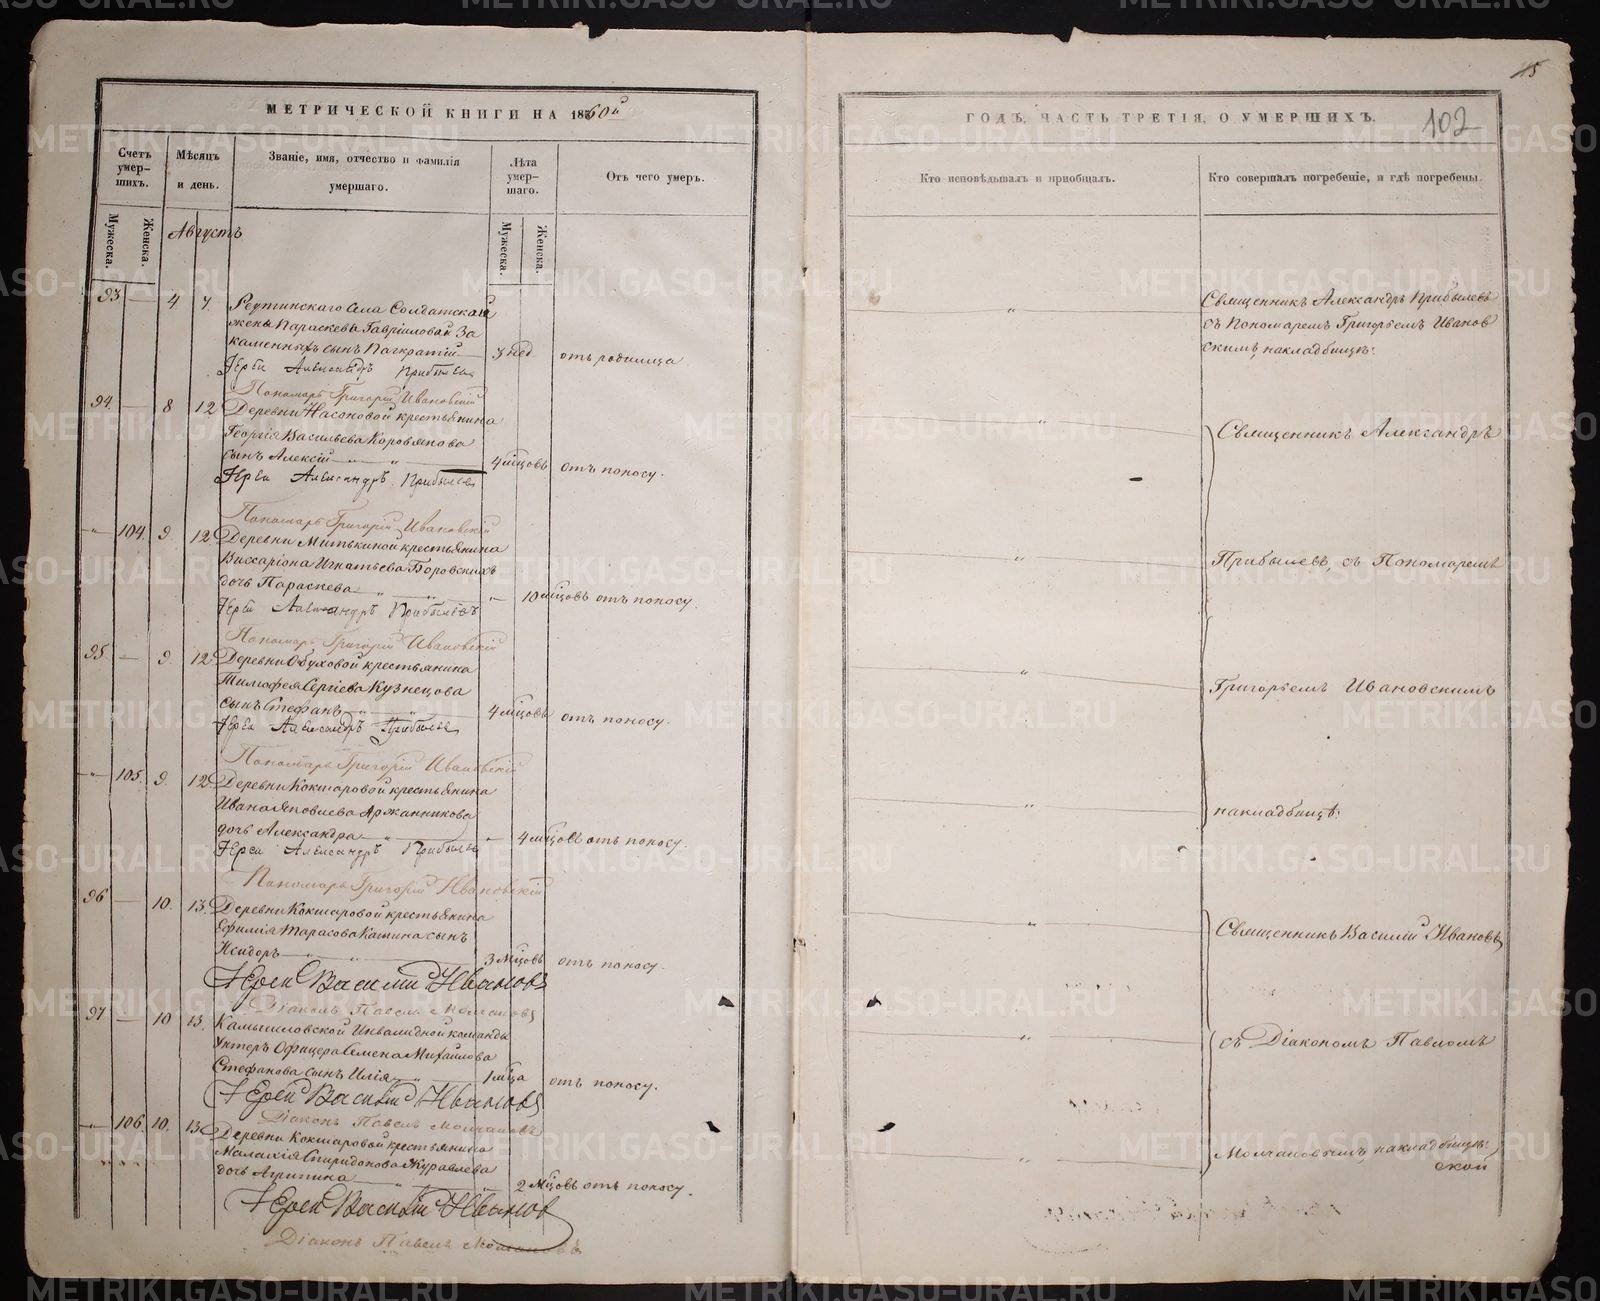 МЕТРИЧЕСКОЙ КНИГИ НА 1860й
Счетъ умер-шихъ.
Мѣсяцъ и день.
Званіе, имя, отчество и фамилія умершаго.
Лѣта умер-шаго.
Отъ чего умеръ.
Мужеска.
Женска.
Августъ
Мужеска.
Женска.
93 — 4. 7. Реутинскаго села Солдатская
жена Параскева Гавріиловой За
каменныхъ сынъ Панкратій — 3 нед отъ родимца
Іерей Александръ Прибылевъ
Пономарь Григорій Ивановскій
94. — 8 12 Деревни Насоновой крестьянина
Георгія Васильева Коровякова
сынъ Алексій — „ — „ — 4 мцовъ отъ поносу.
Іерей Александръ Прибылевъ
Пономарь Григорій Ивановскій
„ 104. 9. 12 Деревни Митькиной крестьянина
Виссаріона Игнатьева Боровскихъ
дочь Параскева — „ — „ — 10 мцовъ отъ поносу.
Іерей Александръ Прибылевъ
Пономарь Григорій Ивановскій
95. — 9. 12 Деревни Обуховой крестьянина
Тимофея Сергіева Кузнецова
сынъ Стефанъ — „ — „ — 4 мцовъ отъ поносу.
Іерей Александръ Прибылев
Пономарь Григорій Ивановскій
„ 105. 9. 12 Деревни Кокшаровой крестьянина
Ивана Яковлева Аржанникова
дочь Александра — „ — „ 4 мцовъ отъ поносу.
Іерей Александръ Прибылев
Пономарь Григорій Ивановскій
96 — 10. 13. Деревни Кокшаровой крестьянина
Тарасова Кашина сынъ
Исидоръ — „ — „ — 3 мцовъ отъ поносу.
Іерей Василій Ивановъ
Діаконъ Павелъ Молчановъ
97 — 10 13. Камышловской Инвалидной команды
Унтеръ Офицера Семена Михайлова
Стефанова сынъ Илія — „ — 1 мца отъ поносу.
Іерей Василій Ивановъ
Діаконъ Павелъ Молчановъ
„ 106. 10. 13 Деревни Кокшаровой крестьянина
Малахія Спиридонова Журавлева
дочь Агрипина — „ — „ — 2 мцовъ отъ поносу.
Іерей Василій Иванов
Діаконъ Павелъ Молчановъ
15
ГОДЪ, ЧАСТЬ ТРЕТІЯ, О УМЕРШИХЪ.
102
Кто исповѣдывалъ и пріобщалъ.
Кто совершалъ погребеніе, и гдѣ погребены.
Священникъ Александръ Прибылевъ
съ Пономаремъ Григорьемъ Иванов
скимъ, накладбищѣ.
Священникъ Александръ
Прибылевъ, съ Пономаремъ
Григорьемъ Ивановскимъ
накладбищѣ.
Священникъ Василій Ивановъ
съ Діакономъ Павломъ
Молчановымъ, накладбищѣ.
METRIKI.GASO-URAL.RU